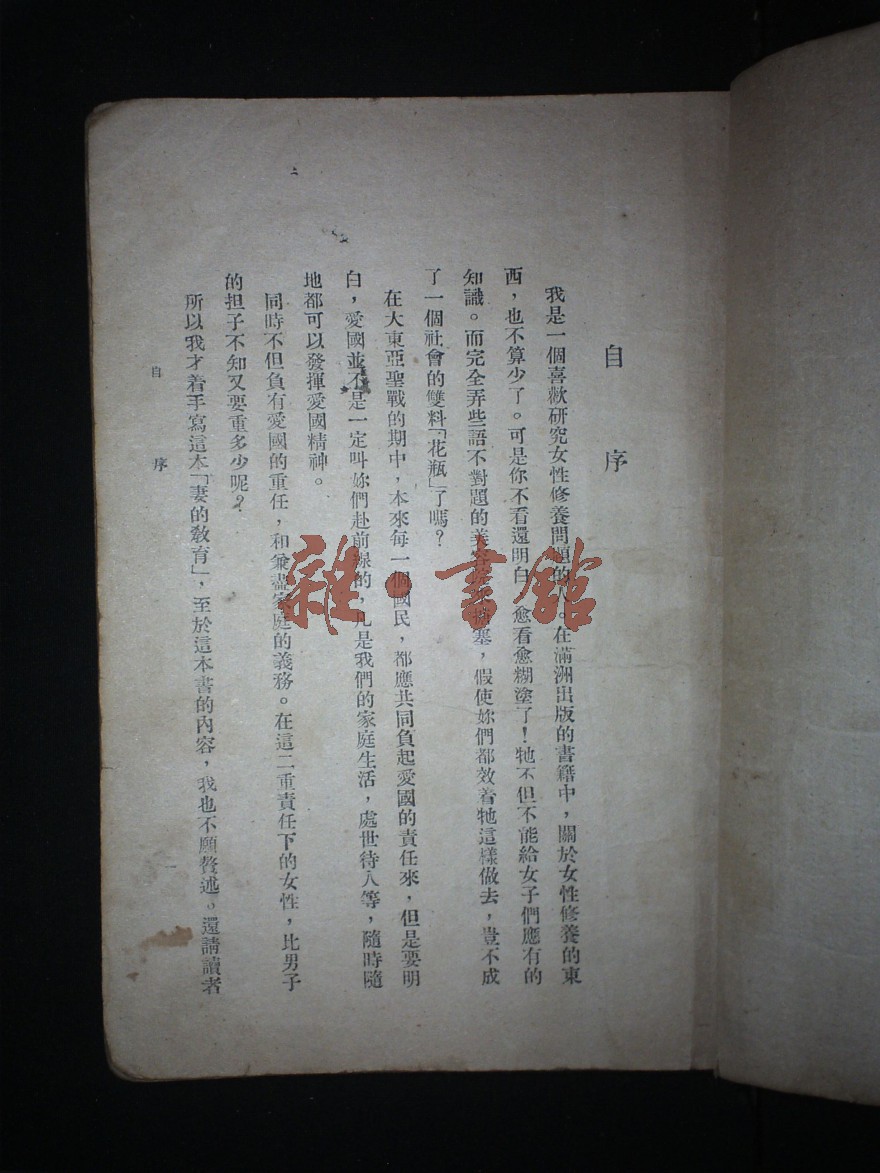 自序
我是一個喜歡研究女性修養問題的人。在滿洲出版的書籍中，關於女性修養的東
西，也不算少了。可是你不看還明白，愈看愈糊塗了！牠不但不能給女子們應有的
知識。而完全弄些語不對題的美容塞，假使妳們都效着牠這樣做去，豈不成
了一個社會的雙料「花瓶」了嗎？
在大東亞聖戰的期中，本來每一個國民，都應共同負起愛國的責任來，但是要明
白，愛國並不是一定叫妳們赴前線的，凡是我們的家庭生活，處世待人等，隨時隨
地都可以發揮愛國精神。
同時不但負有愛國的重任，和兼盡家庭的義務。在這二重責任下的女性，比男子
的担子不知又要重多少呢？
所以我才着手寫這本「妻的教育」，至於這本書的內容，我也不願贅述。還請讀者
自序
雜·書館